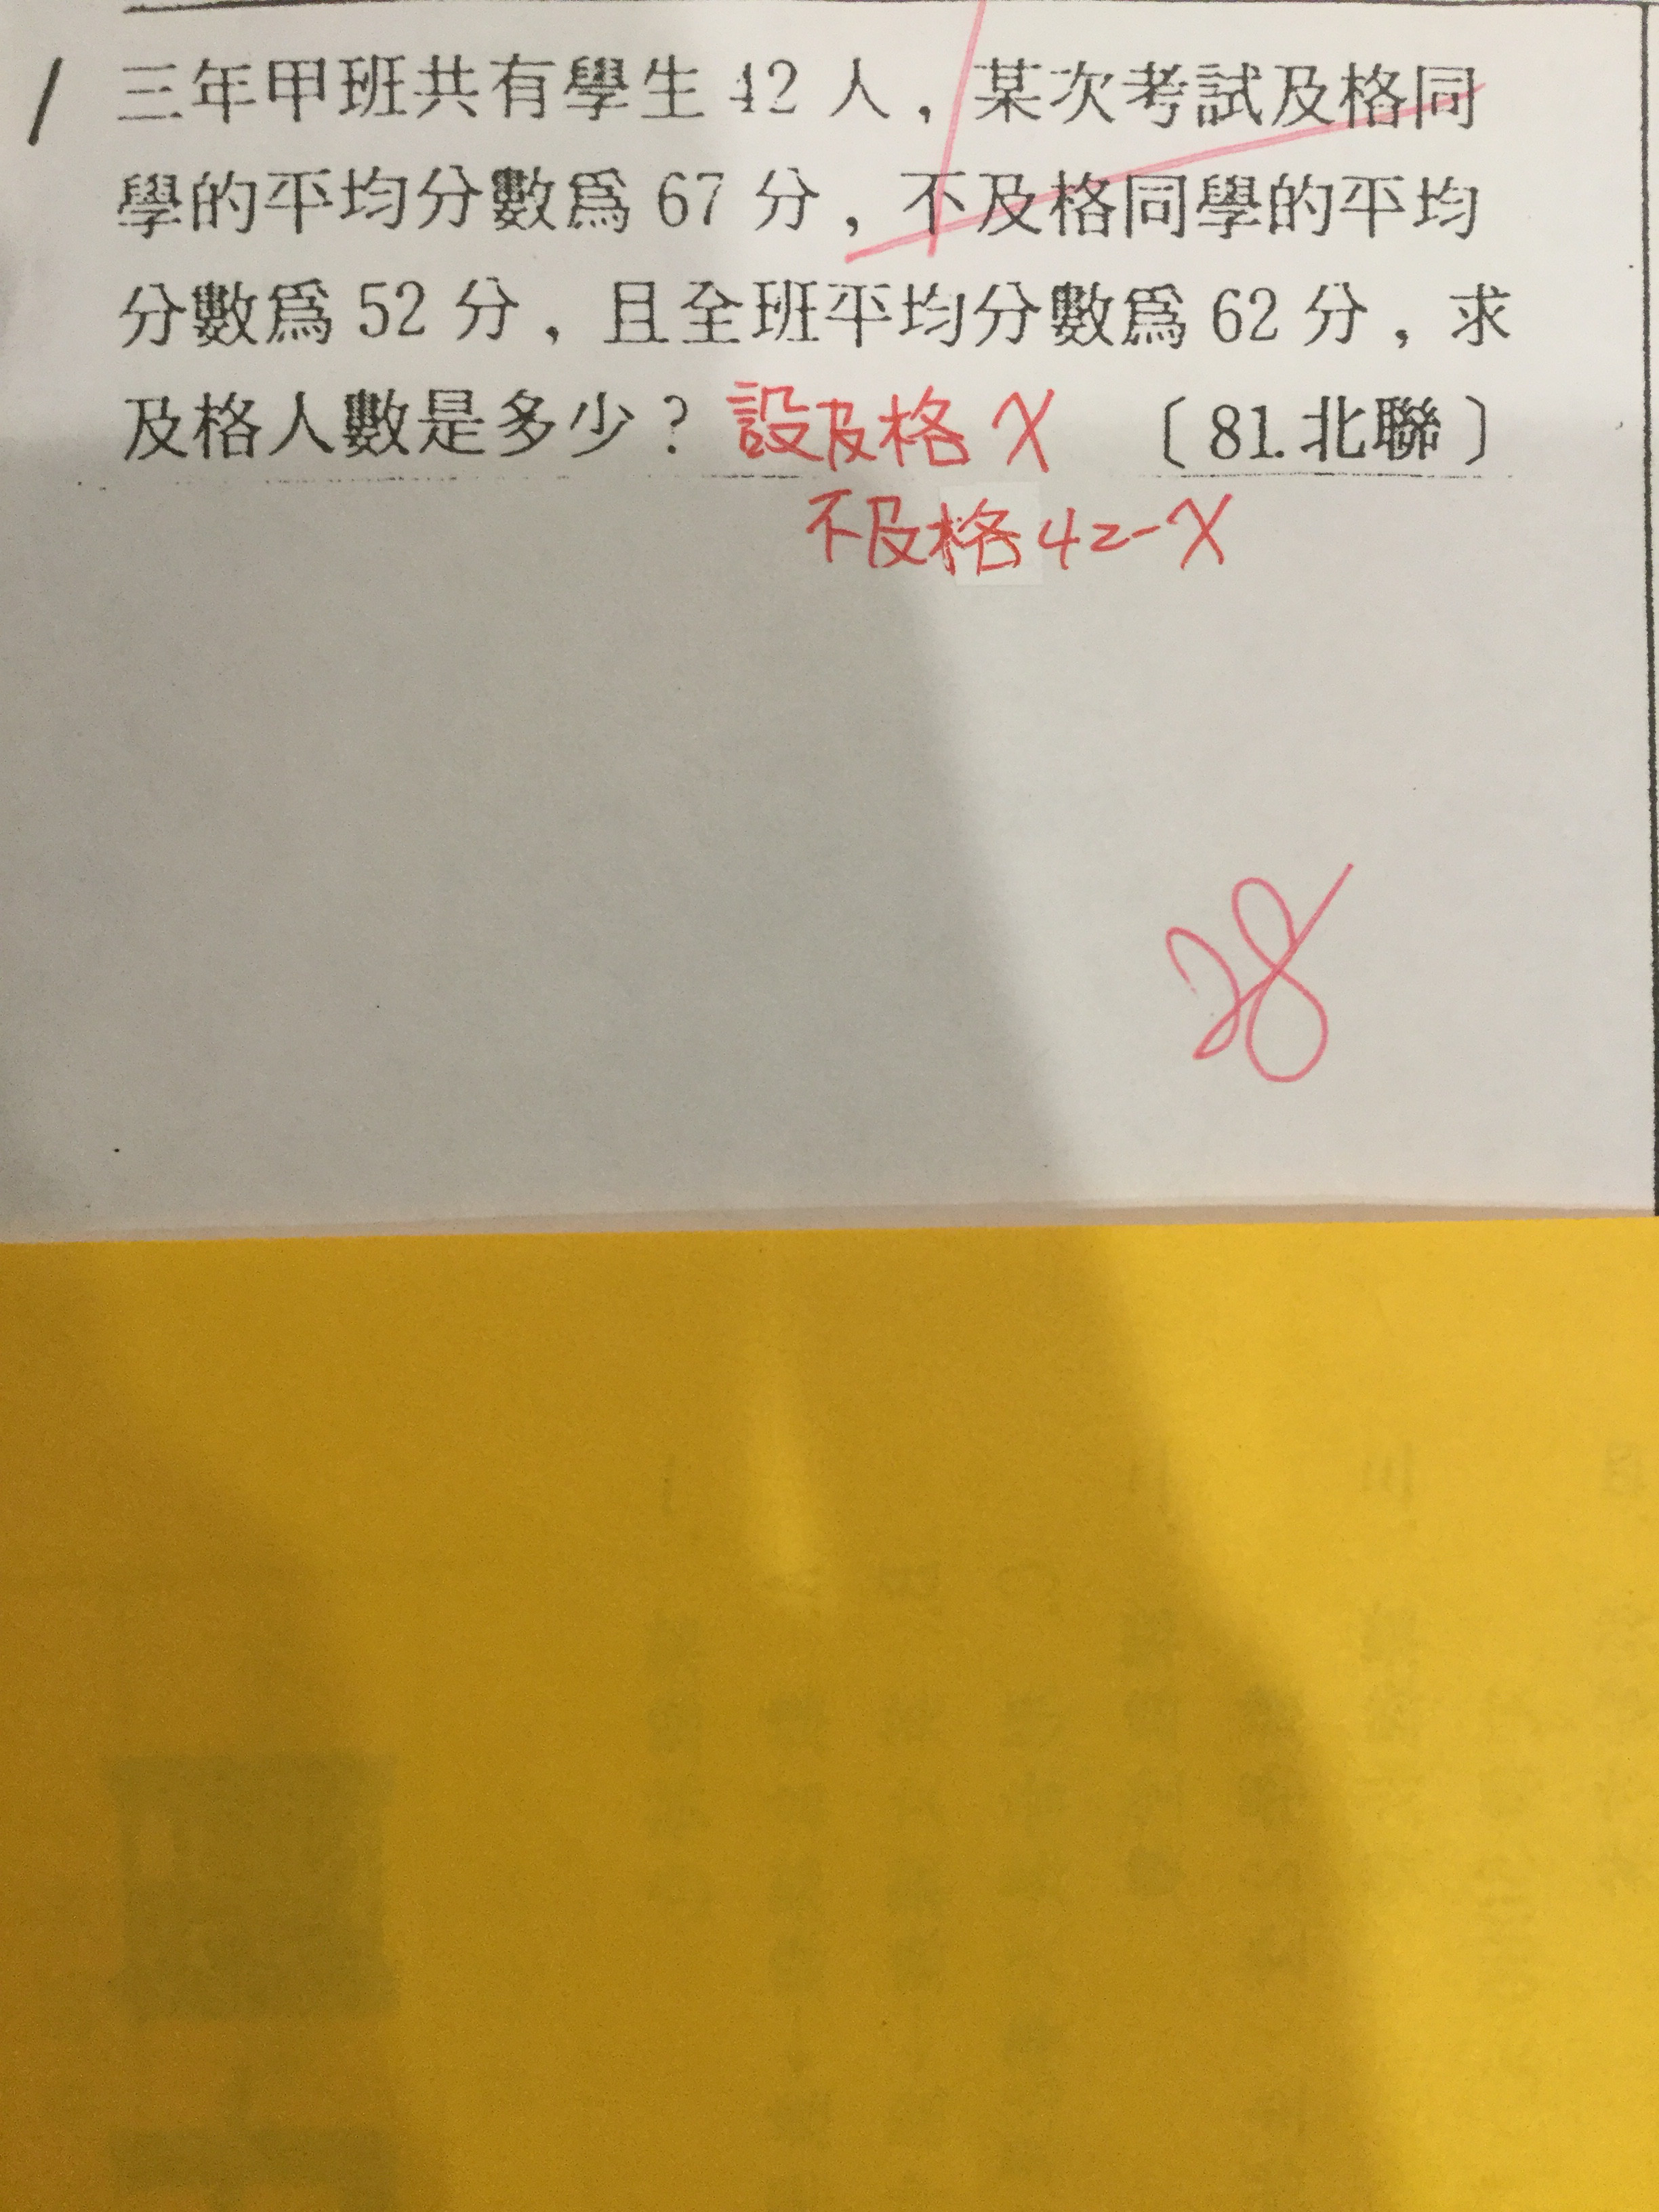 三年甲班共有學生 42 人，某次考試及格同
學的平均分數爲 67 分，不及格同學的平均
分數爲 52 分，且全班平均分數爲 62 分，求
及格人數是多少？設及格 X 〔81.北聯〕
不及格 42-X
28